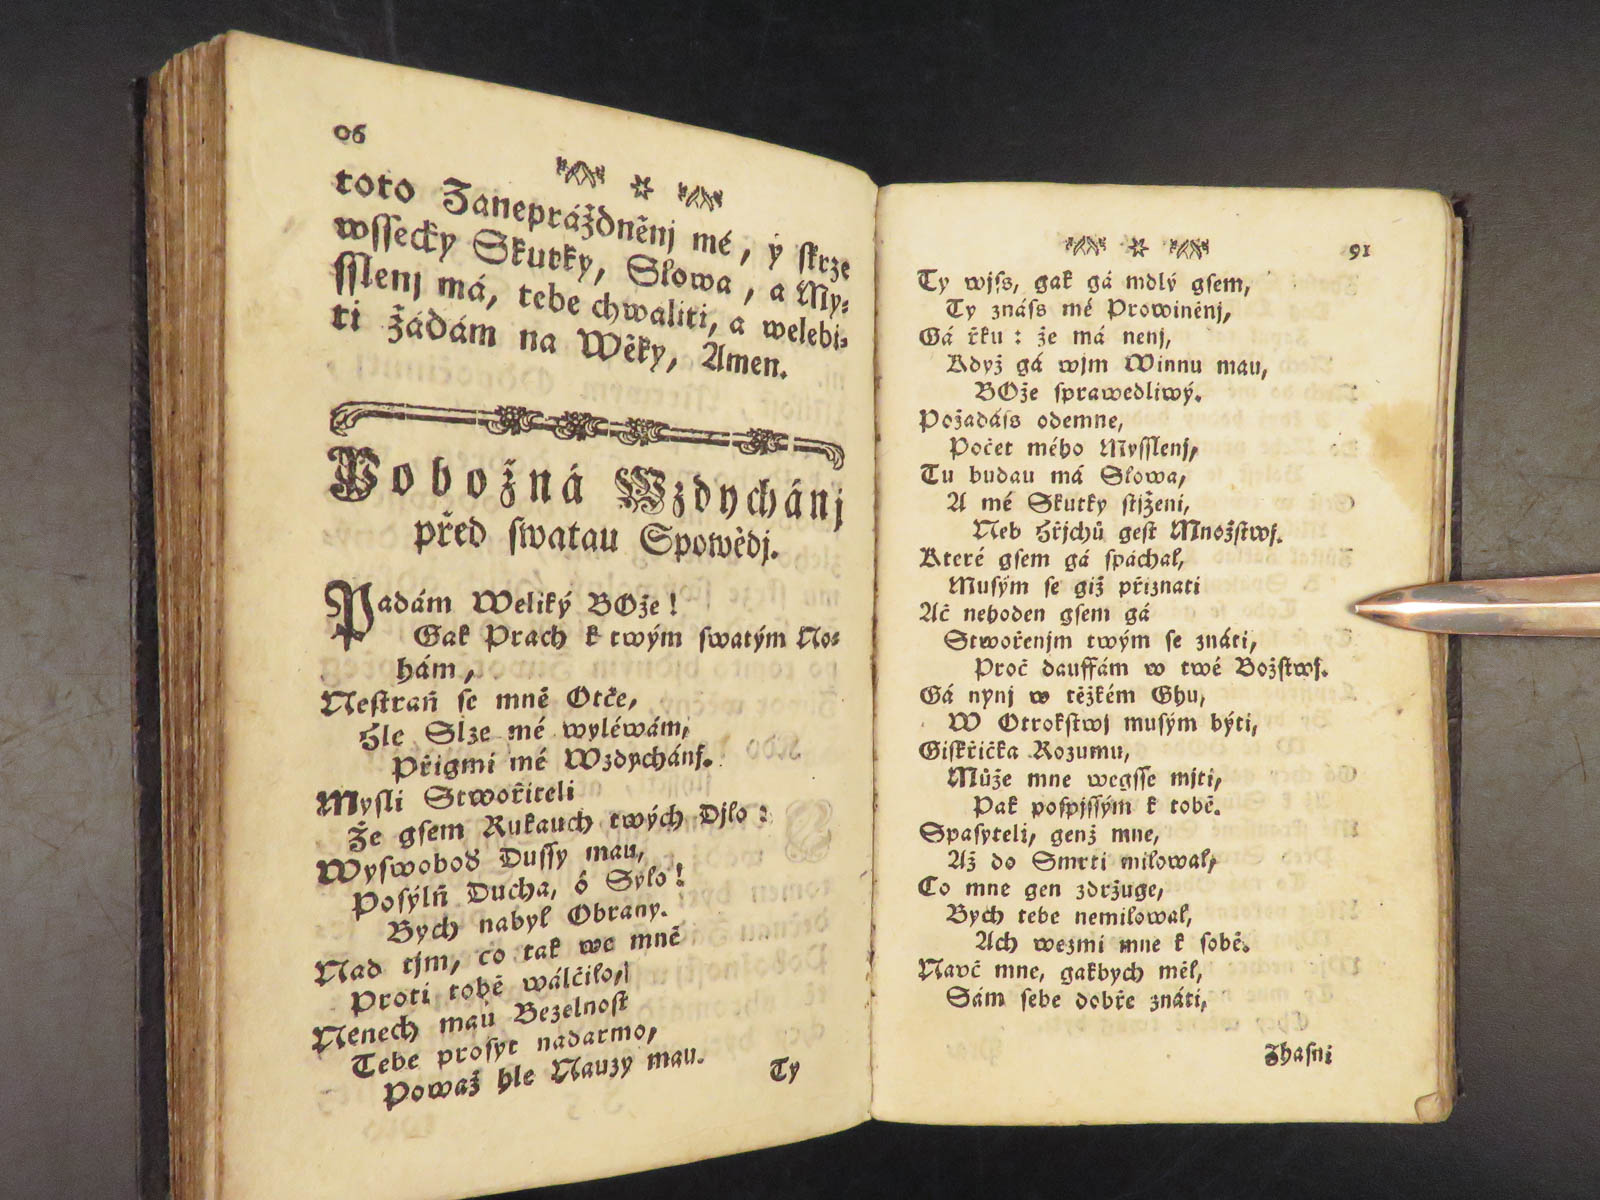 06
toto Zanepráždněnj mé, y skrze
wssecky Skutky, Slowa, a My-
sslenj má, tebe chwaliti, a welebi-
ti žádám na Wěky, Amen.
Pobožná Wzdychánj
před swatau Spowědj.
Padám Weliký BOže!
Gak Prach k twým swatým No-
hám,
Nestraň se mně Otče,
Hle Slze mé wyléwám,
Přigmi mé Wzdychánj.
Mysli Stwořiteli
Že gsem Rukauch twých Djlo:
Wyswoboď Dussy mau,
Posýlň Ducha, ó Sylo!
Bych nabyl Obrany.
Nad tjm, co tak we mně
Proti tobě wálčilo,
Nenech mau Bezelnost
Tebe prosyt nadarmo,
Powaž hle Nauzy mau.
Ty
91
Ty wjſs, gak gá mdlý gsem,
Ty znáſs mé Prowiněnj,
Gá řku: že má nenj,
Když gá wjm Winnu mau,
BOže sprawedliwý.
Požadáſs odemne,
Počet mého Mysslenj,
Tu budau má Slowa,
A mé Skutky stjženi,
Neb Hřjchů gest Množstwj.
Které gsem gá spáchal,
Musým se giž přiznati
Ač nehoden gsem gá
Stwořenjm twým se znáti,
Proč dauffám w twé Božstwj.
Gá nynj w těžkém Ghu,
W Otrokstwj musým býti,
Giskřička Rozumu,
Může mne wegsse mjti,
Pak pospjssým k tobě.
Spasyteli, genž mne,
Až do Smrti milowal,
Co mne gen zdržuge,
Bych tebe nemilowal,
Ach wezmi mne k sobě.
Navč mne, gakbych měl,
Sám sebe dobře znáti,
Zhasni